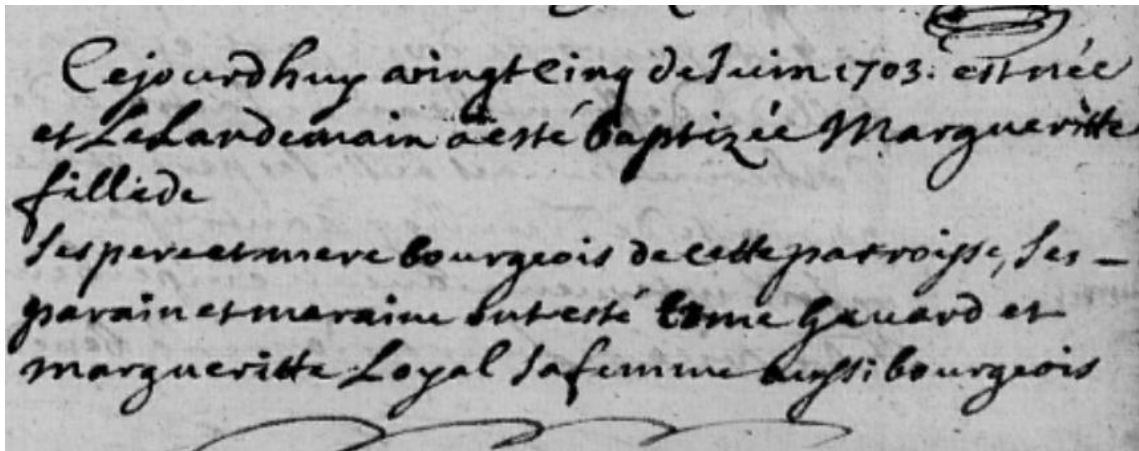 Cejourdhuy avingt Cinq de Juin 1703. est née
et Le Landemain à esté baptizée Margueritte
fille de
Ses pere et mere bourgeois de cette parroisse, Ses –
parain et maraine ont esté et
margueritte Loyal Sa femme aussi bourgeois